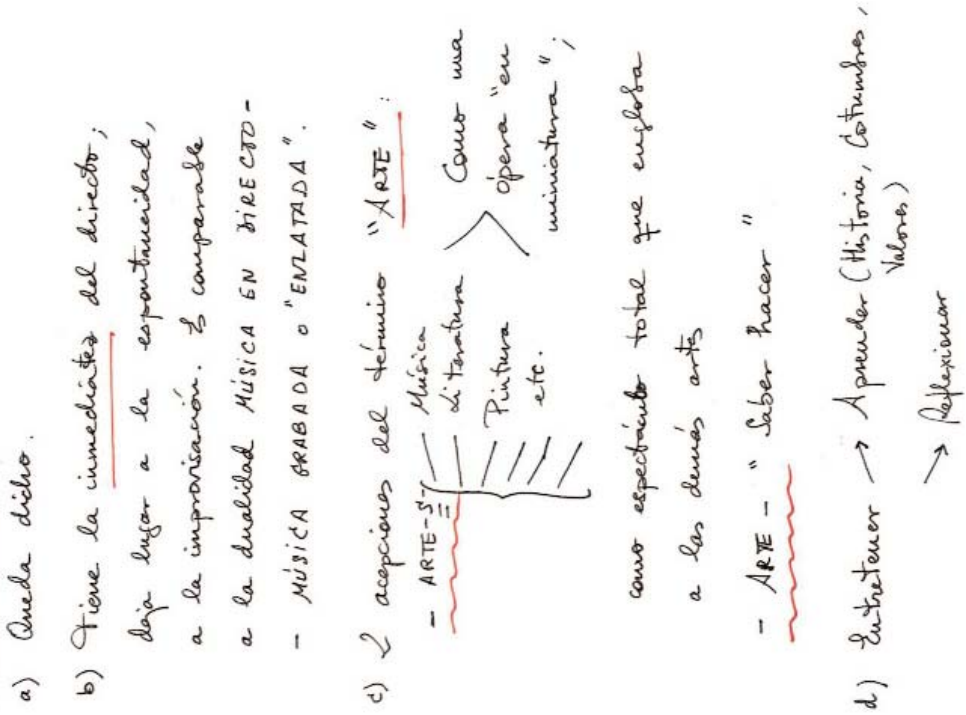 a) Queda dicho.
b) Tiene la inmediatez del directo;
deja lugar a la espontaneidad,
a la improvisación. Es comparable
a la dualidad MÚSICA EN DIRECTO -
- MÚSICA GRABADA o "ENLATADA".
c) 2 acepciones del término "ARTE":
- ARTE-S-
Música
Literatura
Pintura
etc.
Como una
ópera "en
miniatura";
como espectáculo total que engloba
a las demás artes
- ARTE - "Saber hacer"
d) Entretener → Aprender (Historia, Costumbres,
Valores)
→ Reflexionar